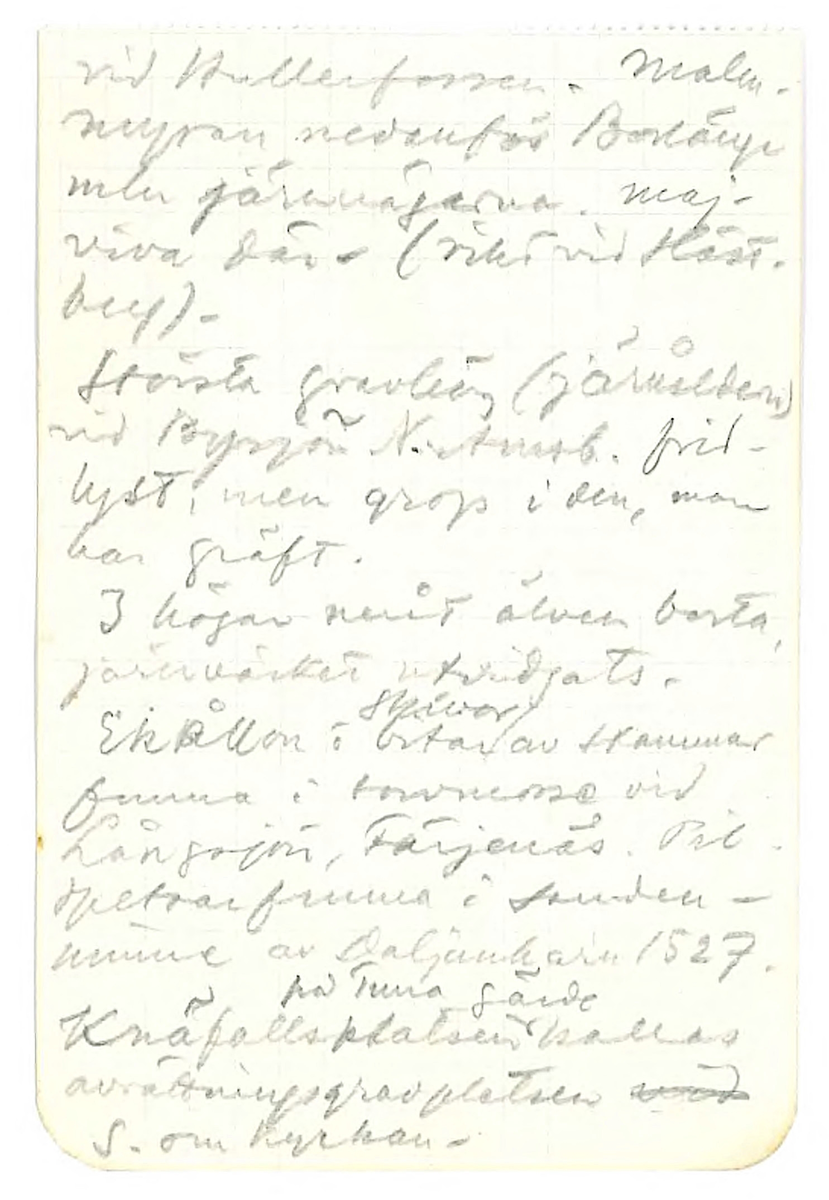 vid Mellerforsen. Malm-
myran nedanför Borlänge
mln järnvägarna. Maj-
viva där. (rikt vid Häst-
berg).
Största gravhög (järnåldern)
vid Byrsjön N. Amsb. frid-
lyst, men grop i den, man
har gräft.
3 högar neråt älven borta,
järnvärket utvidgats.
Ekållon i ortar av stammar
skivor
funna i torvmosse vid
Långsjön, Färjenäs. Pil-
spetsar funna i sanden -
minne av Daljunkarn 1527.
på Tuna gärde
Knäfallsplatsen kallas
avrättningsgravplatsen vid
S. om kyrkan.